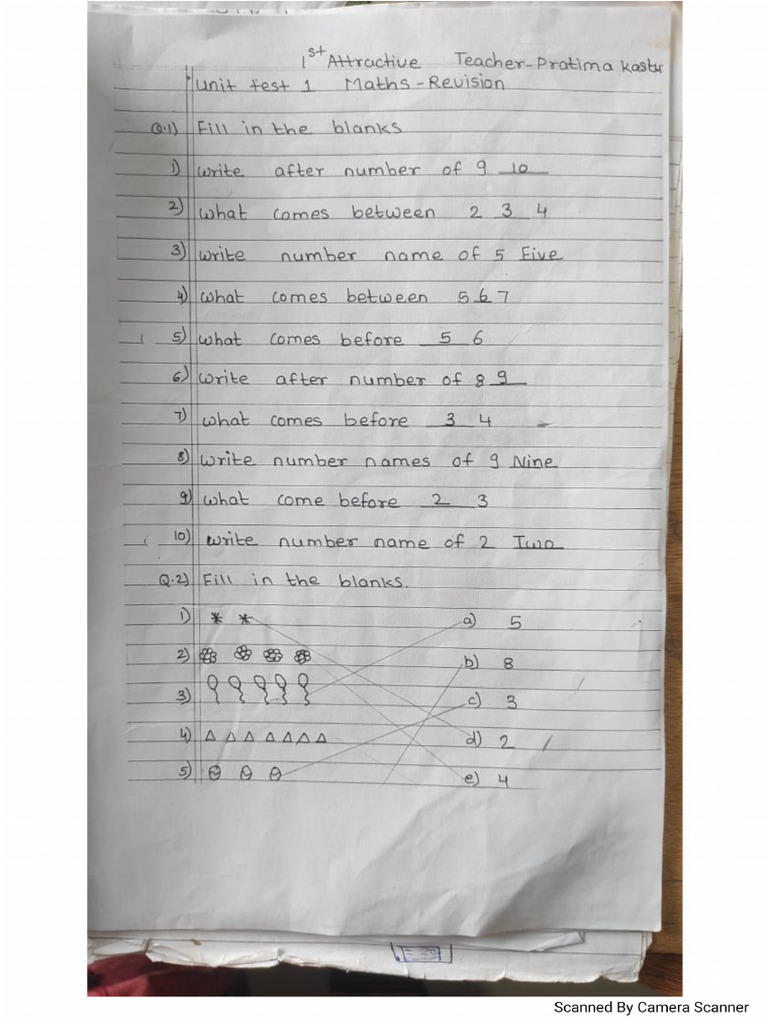 1st Attractive Teacher-Pratima
Unit test 1 Maths-Revision
Q.1) Fill in the blanks
1) Write after number of 9 10
2) What comes between 2 3 4
3) Write number name of 5 Five
4) What comes between 5 6 7
5) What comes before 5 6
6) Write after number of 8 9
7) What comes before 3 4
8) Write number names of 9 Nine
9) What come before 2 3
10) Write number name of 2 Two
Q.2) Fill in the blanks.
1) a) 5
2) b) 8
3) c) 3
4) d) 2
5) e) 4
Scanned By Camera Scanner